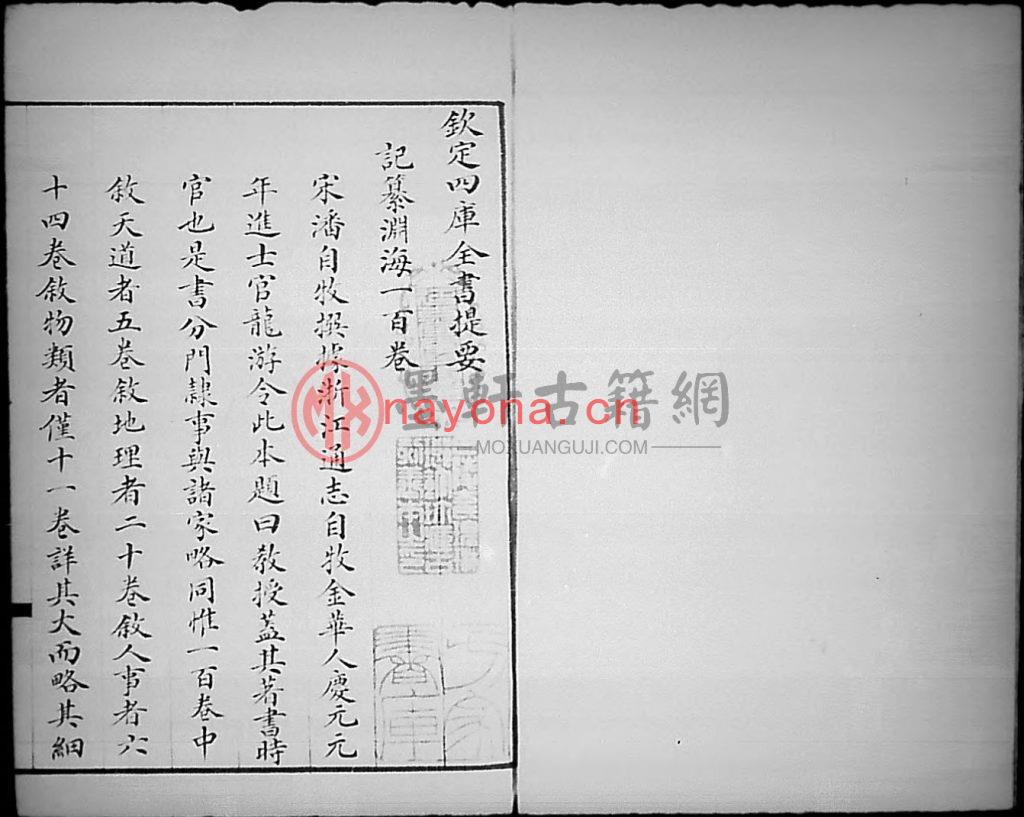 欽定四庫全書提要
記纂淵海一百卷
宋潘自牧撰據浙江通志自牧金華人慶元元
年進士官龍游令此本題曰教授蓋其著書時
官也是書分門隸事與諸家略同惟一百卷中
敘天道者五卷敘地理者二十卷敘人事者六
十四卷敘物類者僅十一卷詳其大而略其細
墨軒古籍網
nayona.cn
MOXUANGUJI.COM